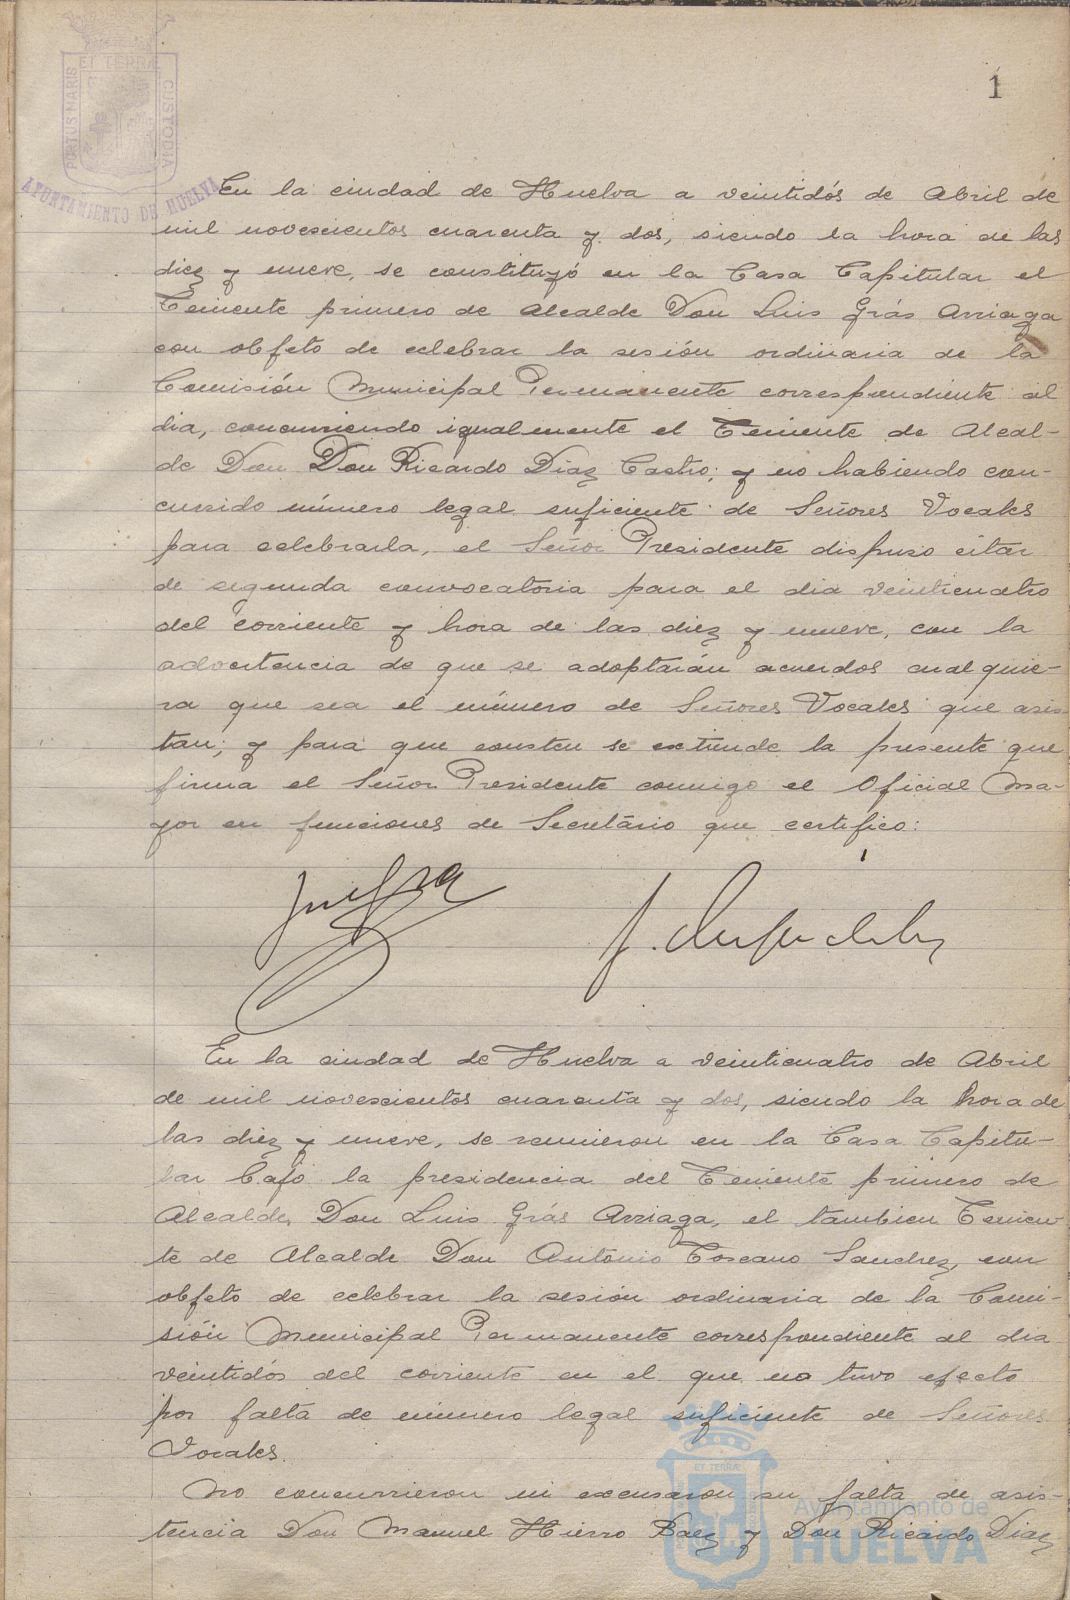 1
ET TERRÆ
PORTUS MARIS
CUSTODIA
AYUNTAMIENTO DE HUELVA
En la ciudad de Huelva a veintidós de Abril de
mil novescientos cuarenta y dos, siendo la hora de las
diez y nueve, se constituyó en la Casa Capitular el
Teniente primero de Alcalde Don Luis Grás Arriaga
con objeto de celebrar la sesión ordinaria de la
Comisión Municipal Permanente correspondiente al
dia, concurriendo igualmente el Teniente de Alcal-
de Don Don Ricardo Diaz Castro; y no habiendo con-
currido número legal suficiente de Señores Vocales
para celebrarla, el Señor Presidente dispuso citar
de segunda convocatoria para el dia veinticuatro
del corriente y hora de las diez y nueve, con la
advertencia de que se adoptarán acuerdos cualquie-
ra que sea el número de Señores Vocales que asis-
tan; y para que consten se extiende la presente que
firma el Señor Presidente conmigo el Oficial Ma-
yor en funciones de Secretário que certifico:
En la ciudad de Huelva a veinticuatro de Abril
de mil novescientos cuarenta y dos, siendo la hora de
las diez y nueve, se reunieron en la Casa Capitu-
lar bajo la presidencia del Teniente primero de
Alcalde, Don Luis Grás Arriaga, el tambien Tenien-
te de Alcalde Don António Toscano Sanchez, con
objeto de celebrar la sesión ordinaria de la Comi-
sión Municipal Permanente correspondiente al dia
veintidós del corriente en el que no tuvo efecto
por falta de número legal suficiente de Señores
Vocales.
No concurrieron ni excusaron su falta de asis-
tencia Don Manuel Hierro Baez y Don Ricardo Diaz
ET TERRÆ
Ayuntamiento de
HUELVA